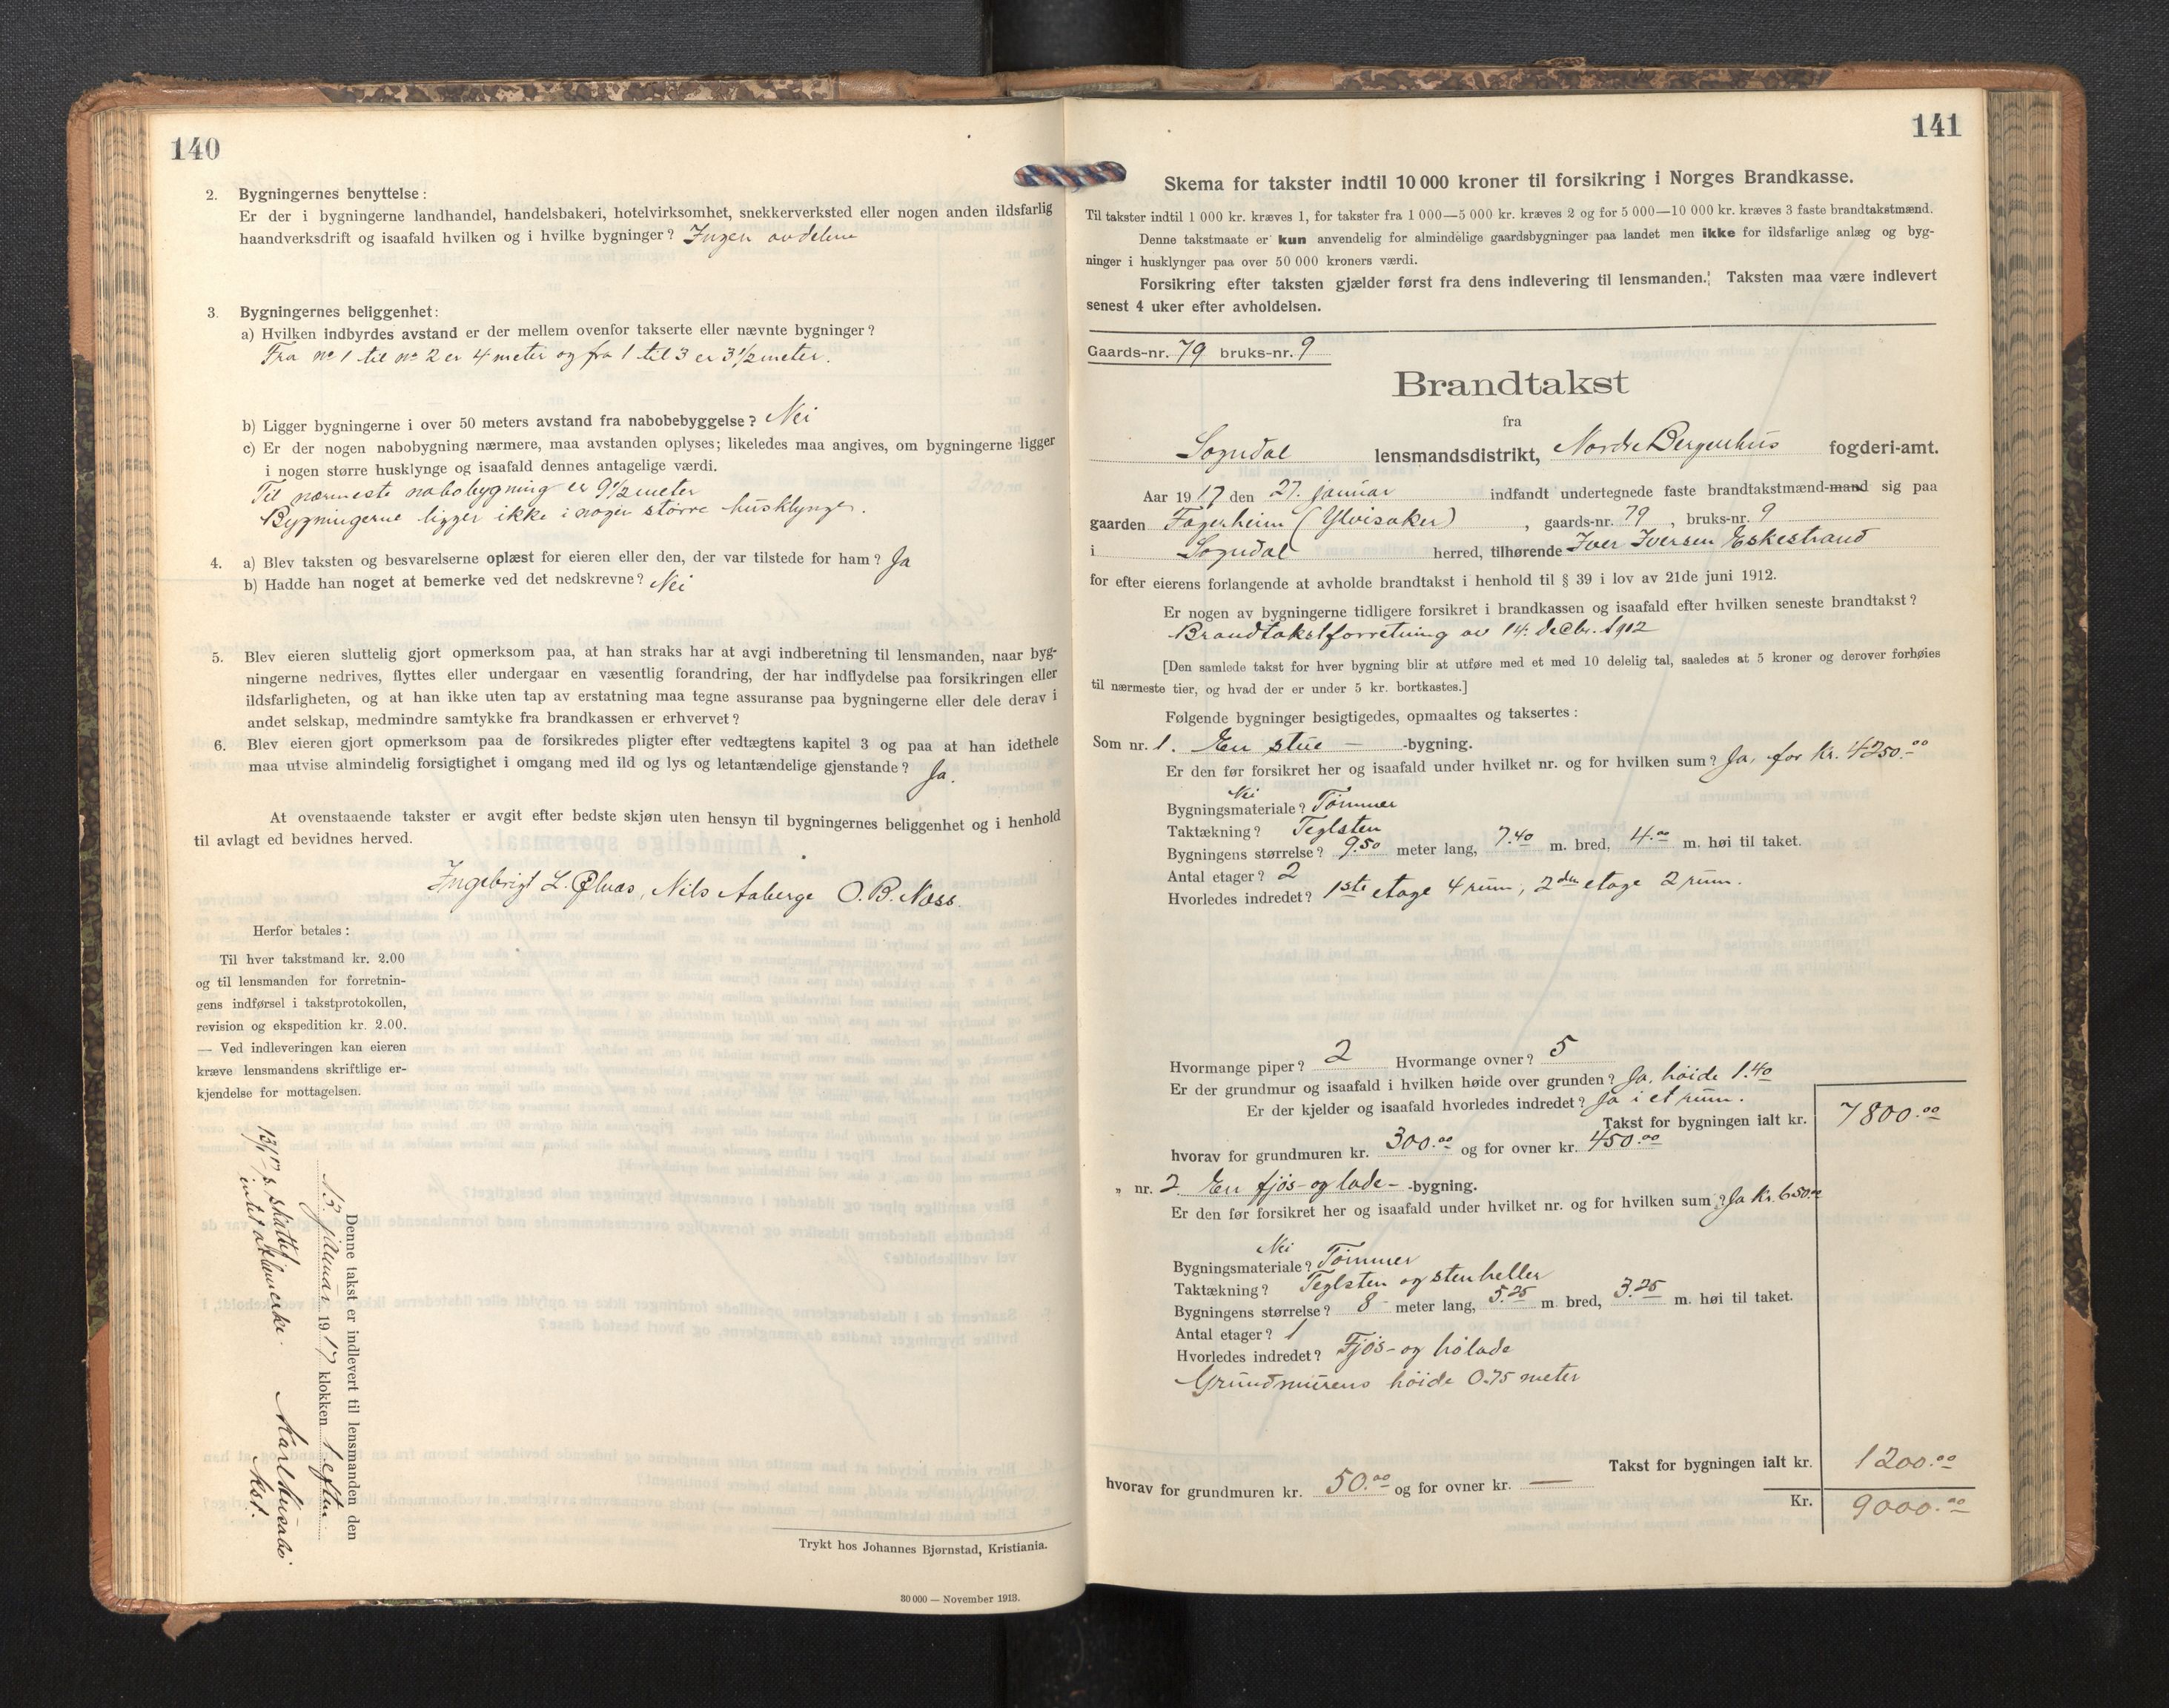 140
2. Bygningernes benyttelse:
Er der i bygningerne landhandel, handelsbakeri, hotelvirksomhet, snekkerverksted eller nogen anden ildsfarlig
haandverksdrift og isaafald hvilken og i hvilke bygninger? Ingen avdelene
3. Bygningernes beliggenhet:
a) Hvilken indbyrdes avstand er der mellem ovenfor takserte eller nævnte bygninger?
Fra no 1 til no 2 er 4 meter og fra 1 til 3 er 3 1/2 meter.
b) Ligger bygningerne i over 50 meters avstand fra nabobebyggelse? Nei
c) Er der nogen nabobygning nærmere, maa avstanden oplyses; likeledes maa angives, om bygningerne ligger
i nogen større husklynge og isaafald dennes antagelige værdi.
Til nærmeste nabobygning er 9 1/2 meter
Bygningerne ligger ikke i nogen større husklynge.
4. a) Blev taksten og besvarelserne oplæst for eieren eller den, der var tilstede for ham? Ja
b) Hadde han noget at bemerke ved det nedskrevne? Nei
5. Blev eieren sluttelig gjort opmerksom paa, at han straks har at avgi indberetning til lensmanden, naar byg-
ningerne nedrives, flyttes eller undergaar en væsentlig forandring, der har indflydelse paa forsikringen eller
ildsfarligheten, og at han ikke uten tap av erstatning maa tegne assuranse paa bygningerne eller dele derav i
andet selskap, medmindre samtykke fra brandkassen er erhvervet?
6. Blev eieren gjort opmerksom paa de forsikredes pligter efter vedtægtens kapitel 3 og paa at han idethele
maa utvise almindelig forsigtighet i omgang med ild og lys og letantændelige gjenstande? Ja.
At ovenstaaende takster er avgit efter bedste skjøn uten hensyn til bygningernes beliggenhet og i henhold
til avlagt ed bevidnes herved.
Ingebrigt L. Nils Aaberge O. B. Næss.
Herfor betales:
Til hver takstmand kr. 2.00
og til lensmanden for forretnin-
gens indførsel i takstprotokollen,
revision og ekspedition kr. 2.00.
— Ved indleveringen kan eieren
kræve lensmandens skriftlige er-
kjendelse for mottagelsen.
Denne takst er indlevert til lensmanden den
13 januar 1917 klokken 1 efterm.
intet at bemerke.
Trykt hos Johannes Bjørnstad, Kristiania.
30 000 — November 1913.
141
Skema for takster indtil 10 000 kroner til forsikring i Norges Brandkasse.
Til takster indtil 1 000 kr. kræves 1, for takster fra 1 000—5 000 kr. kræves 2 og for 5 000—10 000 kr. kræves 3 faste brandtakstmænd.
Denne takstmaate er kun anvendelig for almindelige gaardsbygninger paa landet men ikke for ildsfarlige anlæg og byg-
ninger i husklynger paa over 50 000 kroners værdi.
Forsikring efter taksten gjælder først fra dens indlevering til lensmanden. Taksten maa være indlevert
senest 4 uker efter avholdelsen.
Gaards-nr. 79 bruks-nr. 9
Brandtakst
fra
Sogndal lensmandsdistrikt, Nordre Bergenhus fogderi-amt.
Aar 1917 den 27. januar indfandt undertegnede faste brandtakstmænd-mand sig paa
gaarden Fagerheim (Ylvisaker), gaards-nr. 79, bruks-nr. 9
i Sogndal herred, tilhørende Iver Iversen Eskestrand
for efter eierens forlangende at avholde brandtakst i henhold til § 39 i lov av 21de juni 1912.
Er nogen av bygningerne tidligere forsikret i brandkassen og isaafald efter hvilken seneste brandtakst?
Brandtakstforretning av 14. decbr. 1912
[Den samlede takst for hver bygning blir at utføre med et med 10 delelig tal, saaledes at 5 kroner og derover forhøies
til nærmeste tier, og hvad der er under 5 kr. bortkastes.]
Følgende bygninger besigtigedes, opmaaltes og taksertes:
Som nr. 1. En stue — -bygning.
Er den før forsikret her og isaafald under hvilket nr. og for hvilken sum? Ja, for Kr. 4250.00
Nei
Bygningsmateriale? Tømmer
Taktækning? Teglsten
Bygningens størrelse? 9.50 meter lang, 7.40 m. bred, 4.00 m. høi til taket.
Antal etager? 2
Hvorledes indredet? 1ste etage 4 rum, 2den etage 2 rum.
Hvormange piper? 2 Hvormange ovner? 5
Er der grundmur og isaafald i hvilken høide over grunden? Ja, høide 1.40
Er der kjelder og isaafald hvorledes indredet? Ja i et rum.
Takst for bygningen ialt kr. 7800.00
hvorav for grundmuren kr. 300.00 og for ovner kr. 450.00
„ nr. 2 En fjøs- og lade- -bygning.
Er den før forsikret her og isaafald under hvilket nr. og for hvilken sum? Ja Kr. 650.00
Nei
Bygningsmateriale? Tømmer
Taktækning? Teglsten og stenheller
Bygningens størrelse? 8 - meter lang, 5.25 m. bred, 3.25 m. høi til taket.
Antal etager? 1
Hvorledes indredet? Fjøs- og hølade
Grundmurens høide 0.75 meter
Takst for bygningen ialt kr. 1200.00
hvorav for grundmuren kr. 50.00 og for ovner kr. —
Kr. 9000.00